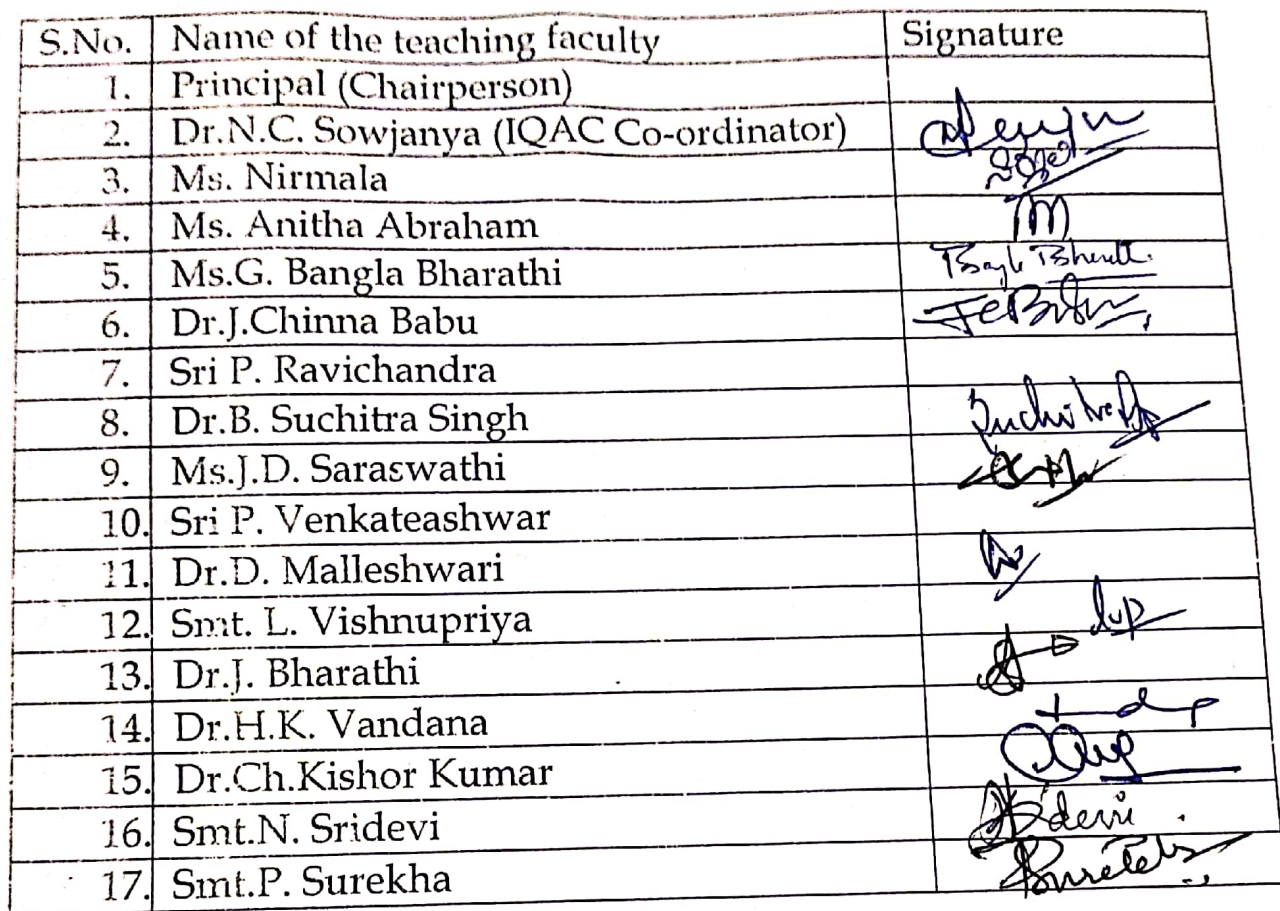 S.No. Name of the teaching faculty Signature
1. Principal (Chairperson)
2. Dr.N.C. Sowjanya (IQAC Co-ordinator)
3. Ms. Nirmala
4. Ms. Anitha Abraham
5. Ms.G. Bangla Bharathi
6. Dr.J.Chinna Babu
7. Sri P. Ravichandra
8. Dr.B. Suchitra Singh
9. Ms.J.D. Saraswathi
10. Sri P. Venkateashwar
11. Dr.D. Malleshwari
12. Smt. L. Vishnupriya
13. Dr.J. Bharathi
14. Dr.H.K. Vandana
15. Dr.Ch.Kishor Kumar
16. Smt.N. Sridevi
17. Smt.P. Surekha